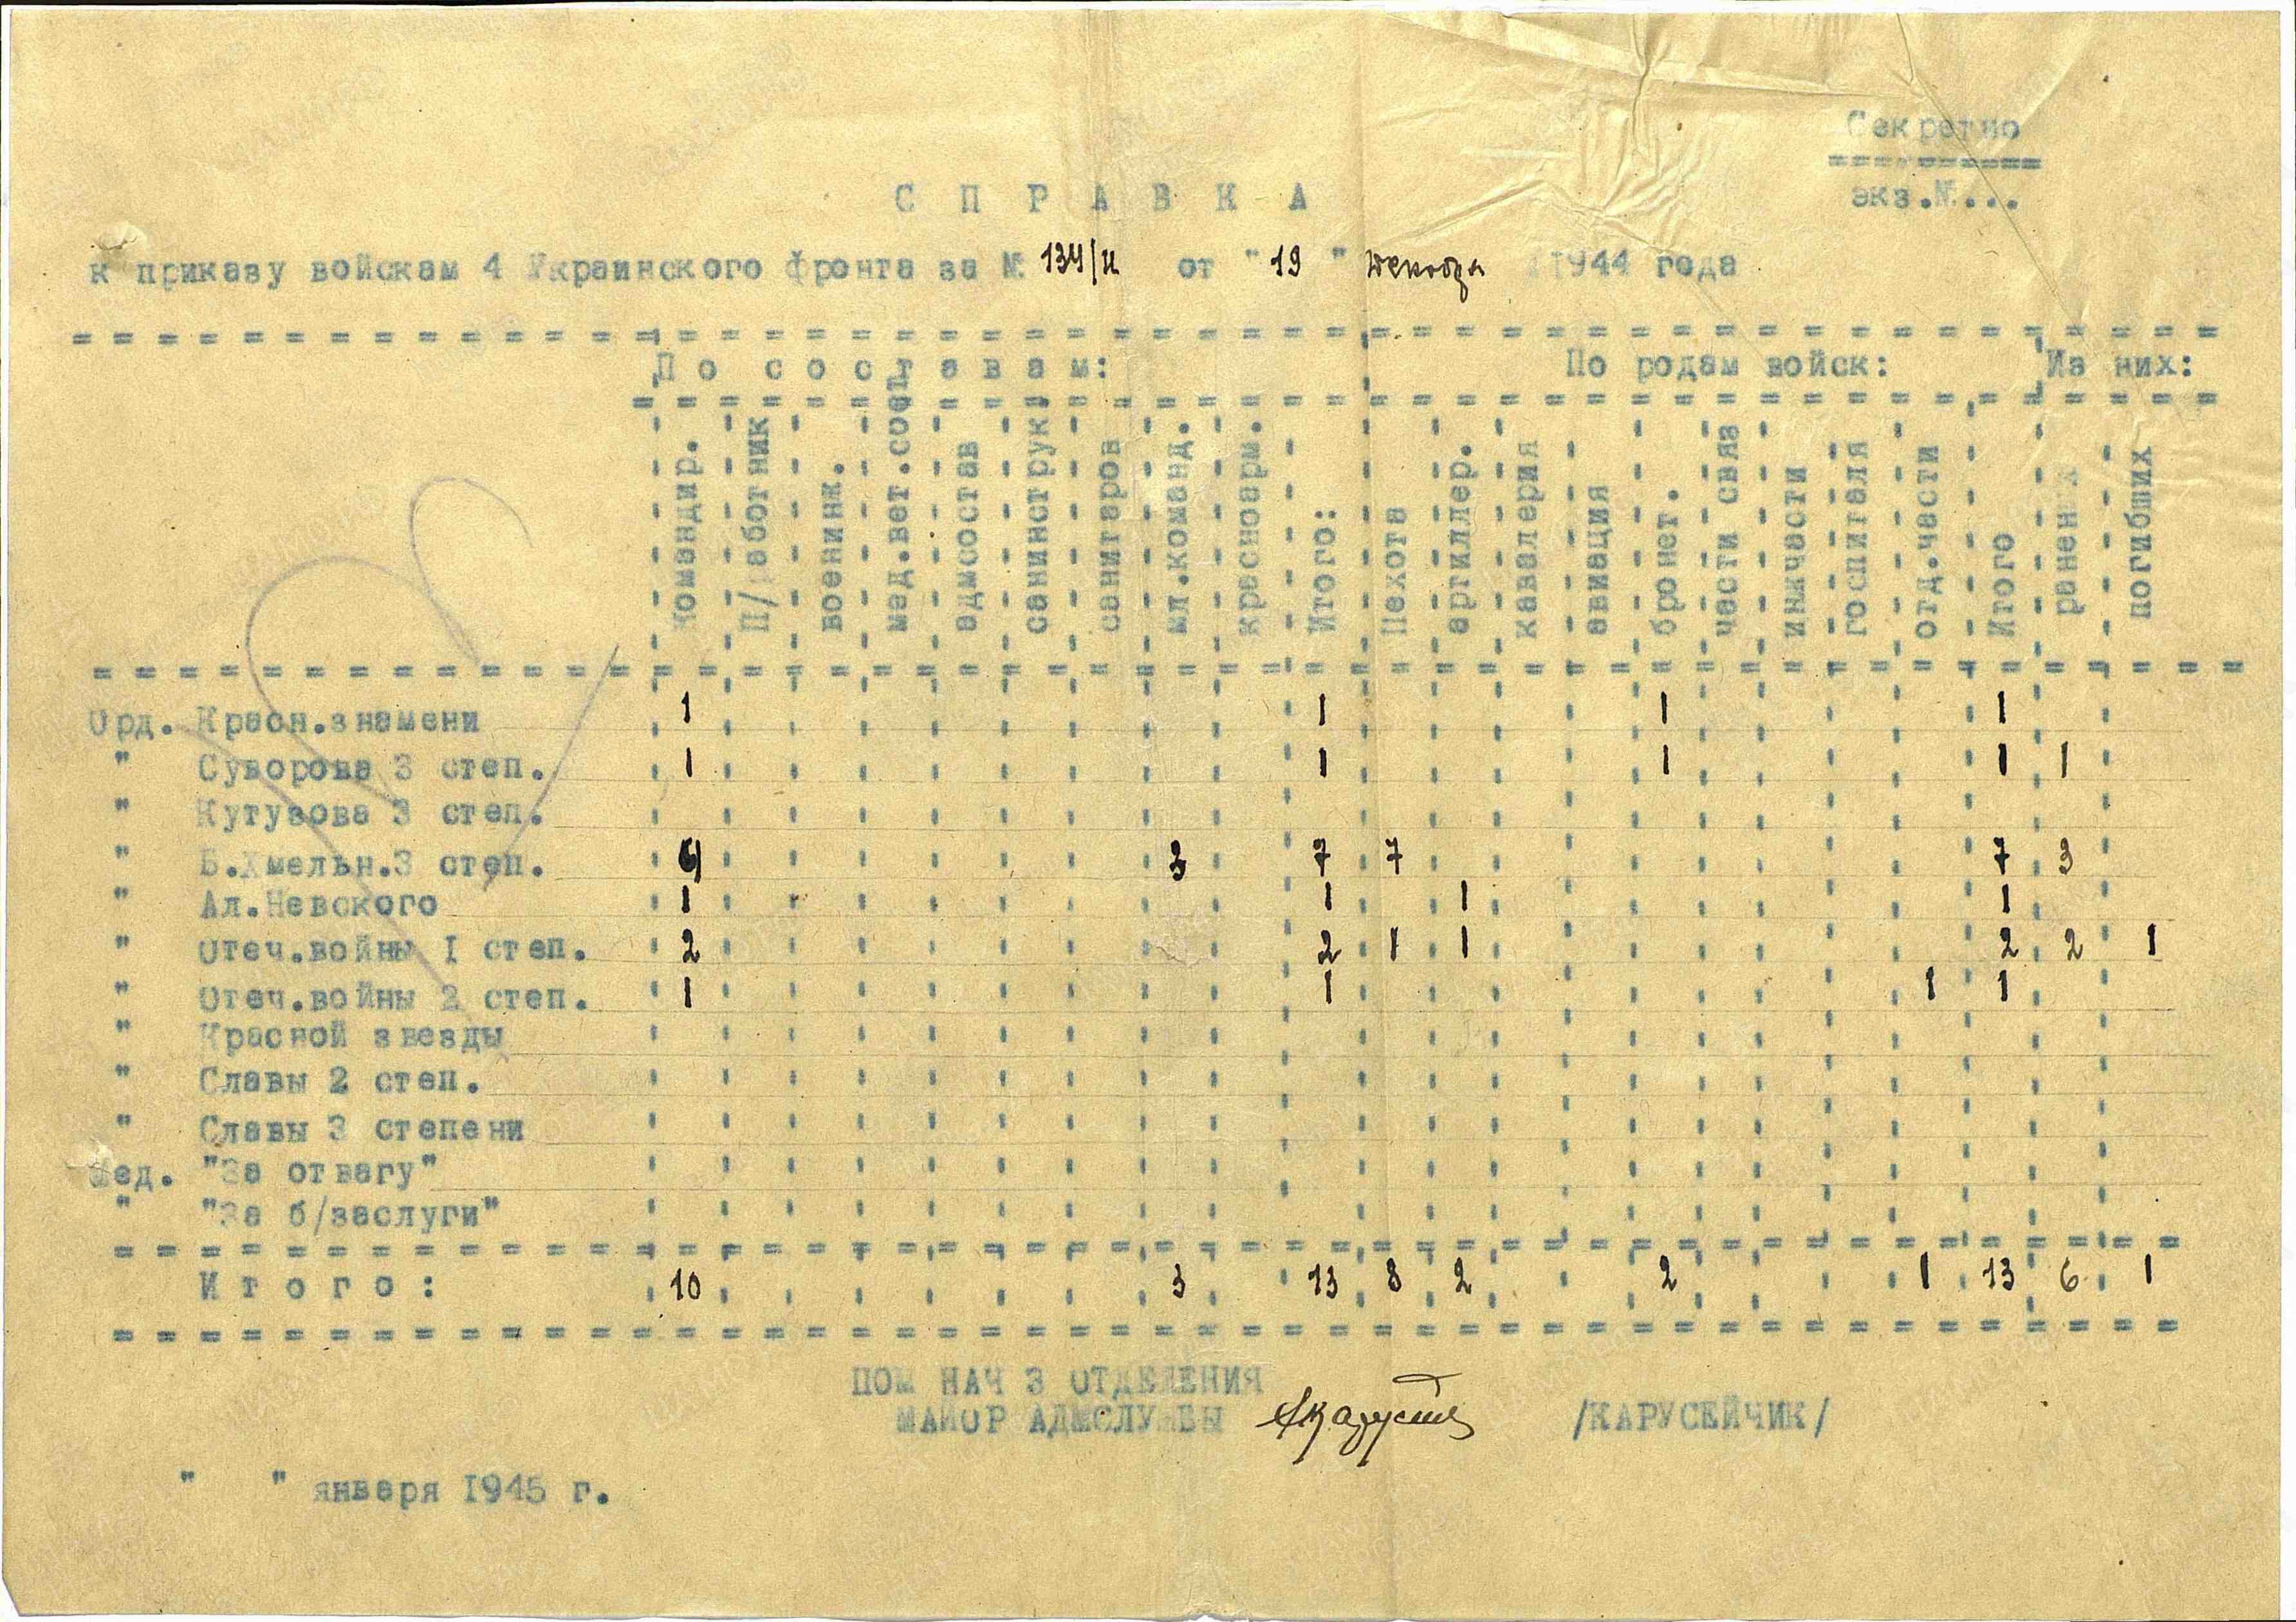 Секретно
экз.№...
С П Р А В К А
к приказу войскам 4 Украинского фронта за № 134/н от "19" декабря 1944 года
По составам: По родам войск: Из них:
командир. п/работник военинж. мед.вет.сост. админсостав санинструк. санитаров мл.команд. красноарм. Итого: Пехота артиллер. кавалерия авиация бронет. части связ инжчасти госпиталя отд.части Итого ранен погибших
Орд. Красн.знамени 1 1 1 1
" Суворова 3 степ. 1 1 1 1 1
" Кутузова 3 степ.
" Б.Хмельн.3 степ. 3 7 7 7 3
" Ал.Невского 1 1 1 1
" Отеч.войны I степ. 2 2 1 1 2 2 1
" Отеч.войны 2 степ. 1 1 1 1
" Красной звезды
" Славы 2 степ.
" Славы 3 степени
Мед. "За отвагу"
" "За б/заслуги"
Итого: 10 3 13 8 2 2 1 13 6 1
ПОМ НАЧ 3 ОТДЕЛЕНИЯ
МАЙОР АДМСЛУЖБЫ /КАРУСЕЙЧИК/
" " января 1945 г.